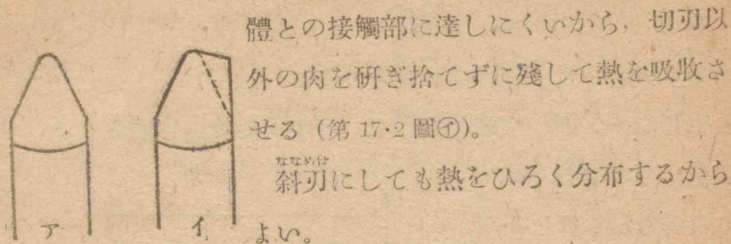 體との接觸部に達しにくいから，切刃以
外の肉を硏ぎ捨てずに殘して熱を吸收さ
せる（第 17·2 圖㋑）。
ななめば
斜刃にしても熱をひろく分布するから
よい。
ア
イ